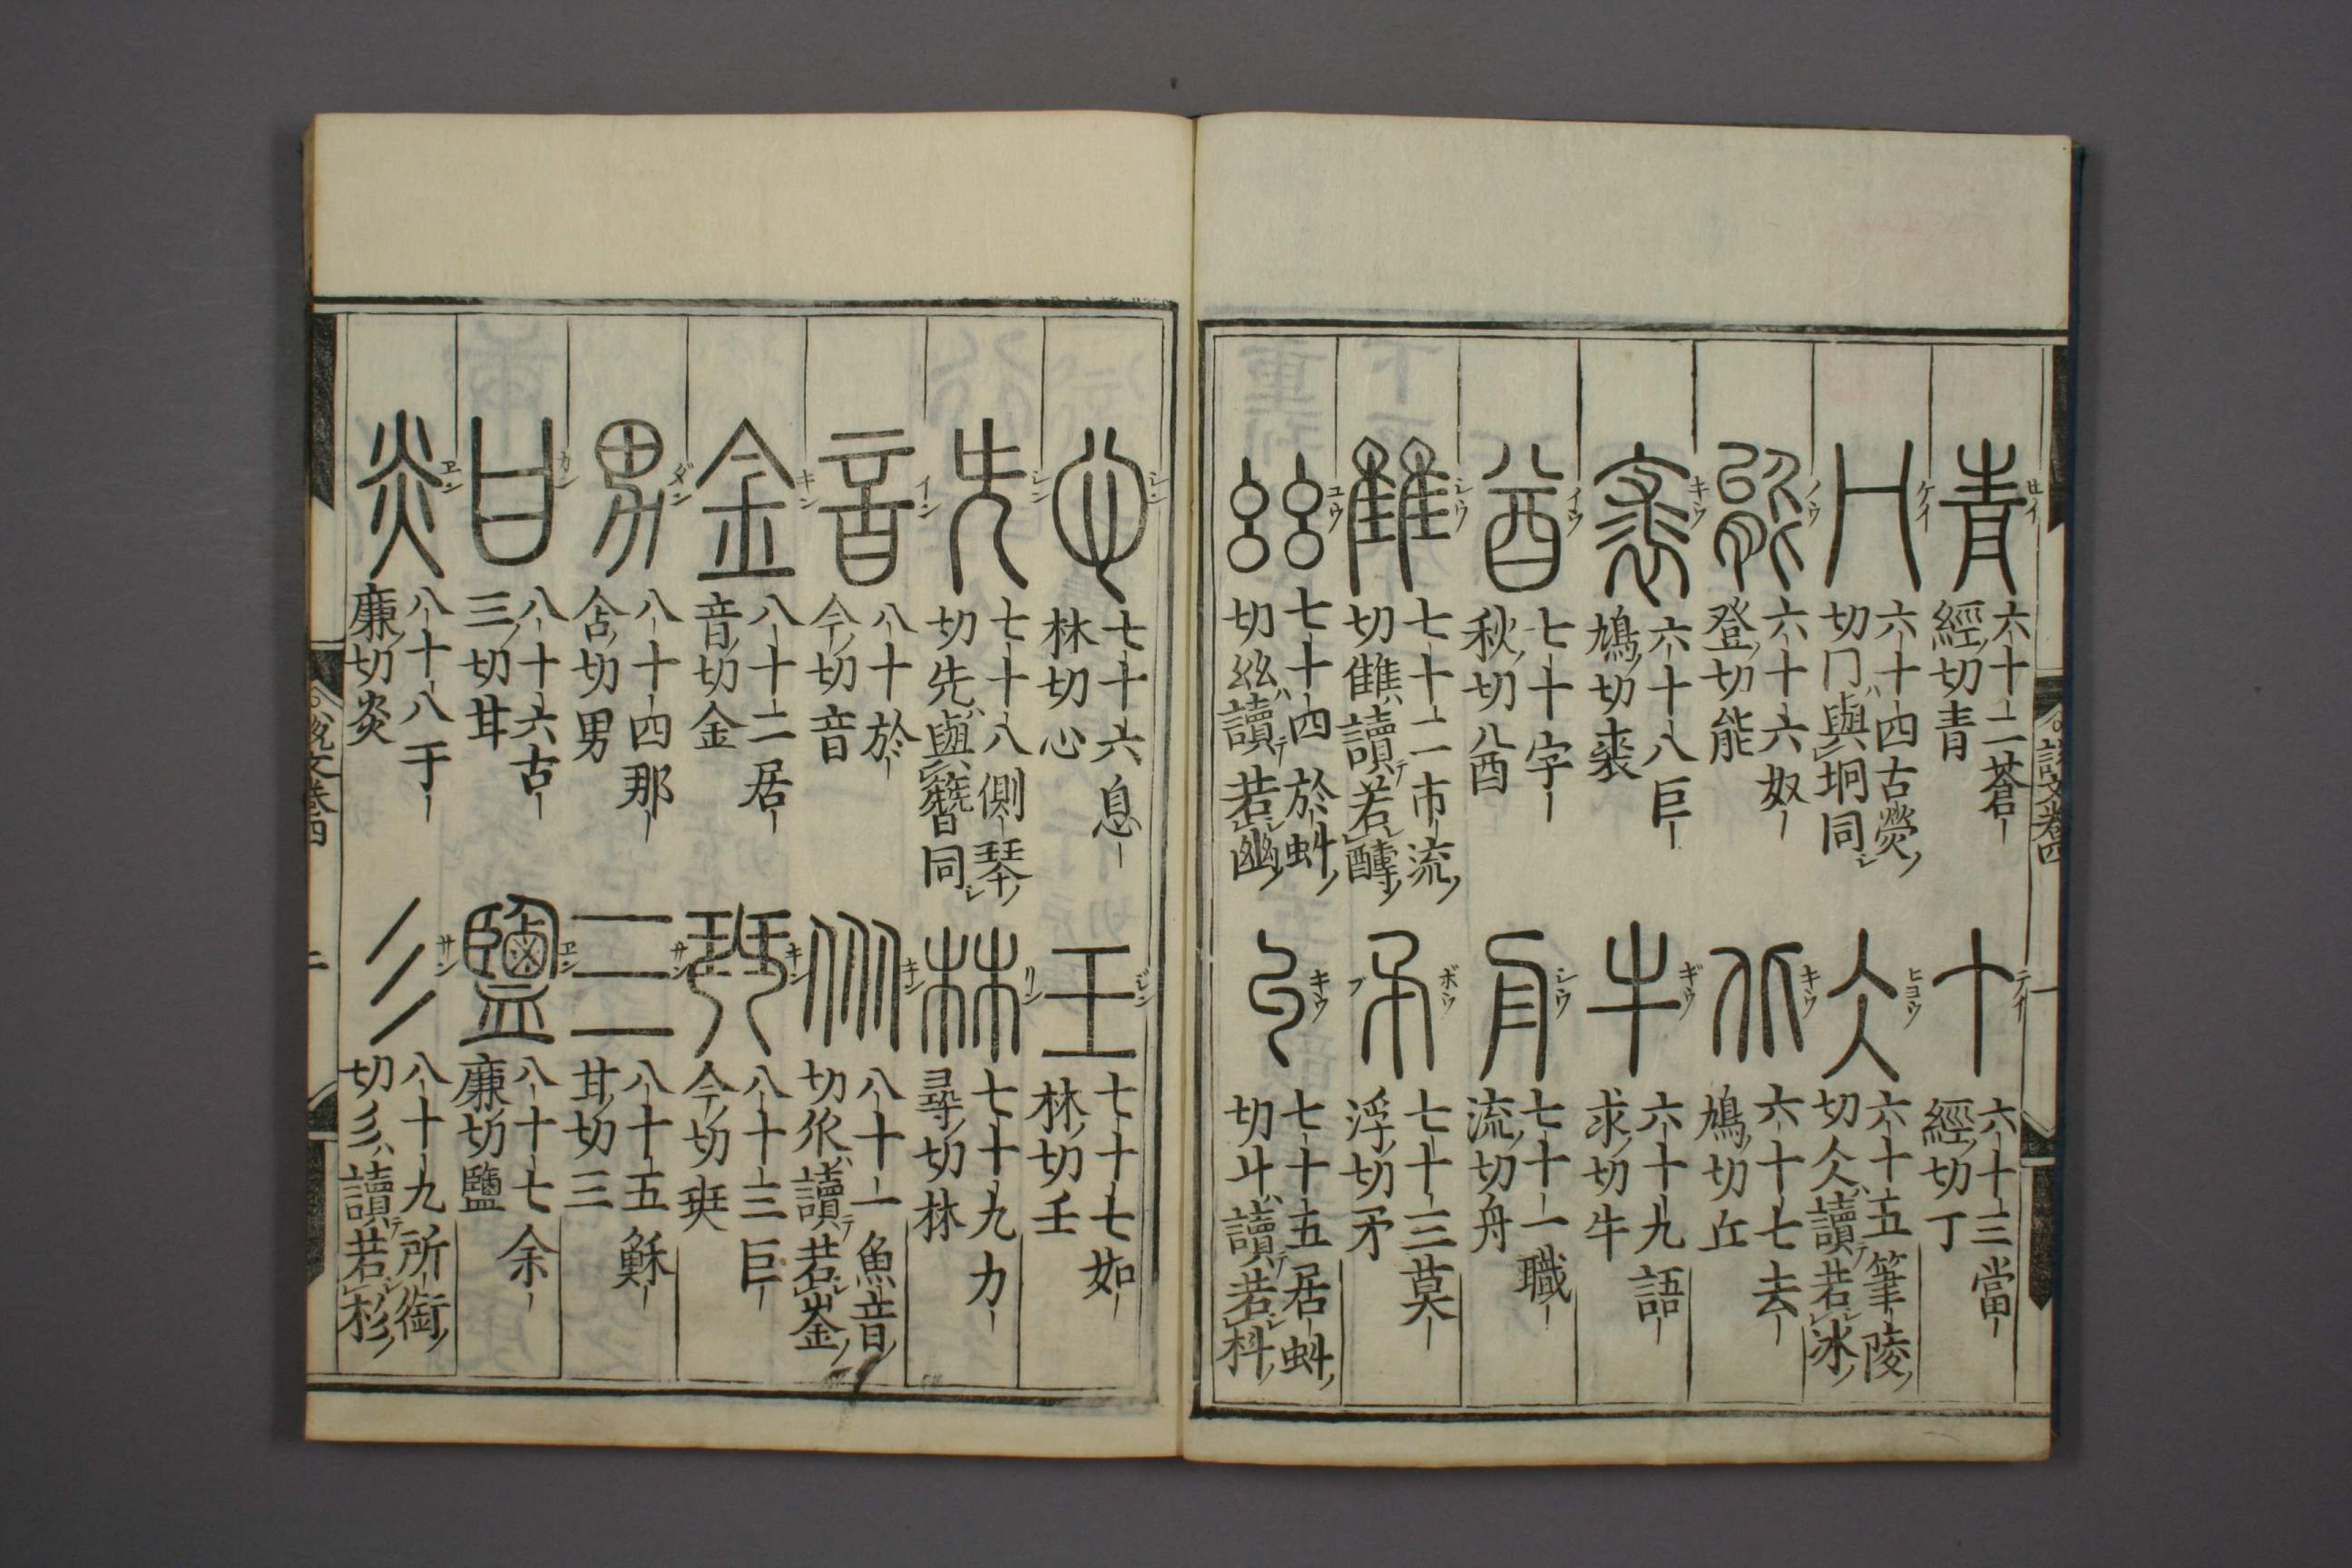 説文卷四
一
青 セイ
六十二蒼
經切青
丁 テイ
六十三當
經切丁
冂 ケイ
六十四古熒
切冂與坰同
仌 ヒヨウ
六十五筆陵
切仌讀若冰
能 ノウ
六十六奴
登切能
丘 キウ
六十七去
鳩切丘
裘 キウ
六十八巨
鳩切裘
牛 ギウ
六十九語
求切牛
酋 イウ
七十字
秋切酋
舟 シウ
七十一職
流切舟
雔 シウ
七十二市流
切雔讀若醻
矛 ボウ
七十三莫
浮切矛
𢆶 ユウ
七十四於虯
切𢆶讀若幽
丩 キウ
七十五居虯
切丩讀若糾
心 シン
七十六息
林切心
壬 ジン
七十七如
林切壬
兂 シン
七十八側琴
切兂與簪同
林 リン
七十九力
尋切林
音 イン
八十於
今切音
乑 キン
八十一魚音
切乑讀若崟
金 キン
八十二居
音切金
珡 キン
八十三巨
今切珡
男 ダン
八十四那
含切男
三 サン
八十五穌
甘切三
甘 カン
八十六古
三切甘
鹽 ヱン
八十七余
廉切鹽
炎 ヱン
八十八于
廉切炎
彡 サン
八十九所銜
切彡讀若杉
説文卷四
二